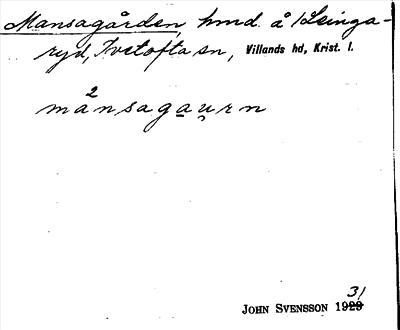 Mansagården, hmd. å 1 Leinga-
ryd, Ivetofta sn, Villands hd, Krist. l.
2
månsagau̯rn
31
JOHN SVENSSON 1929